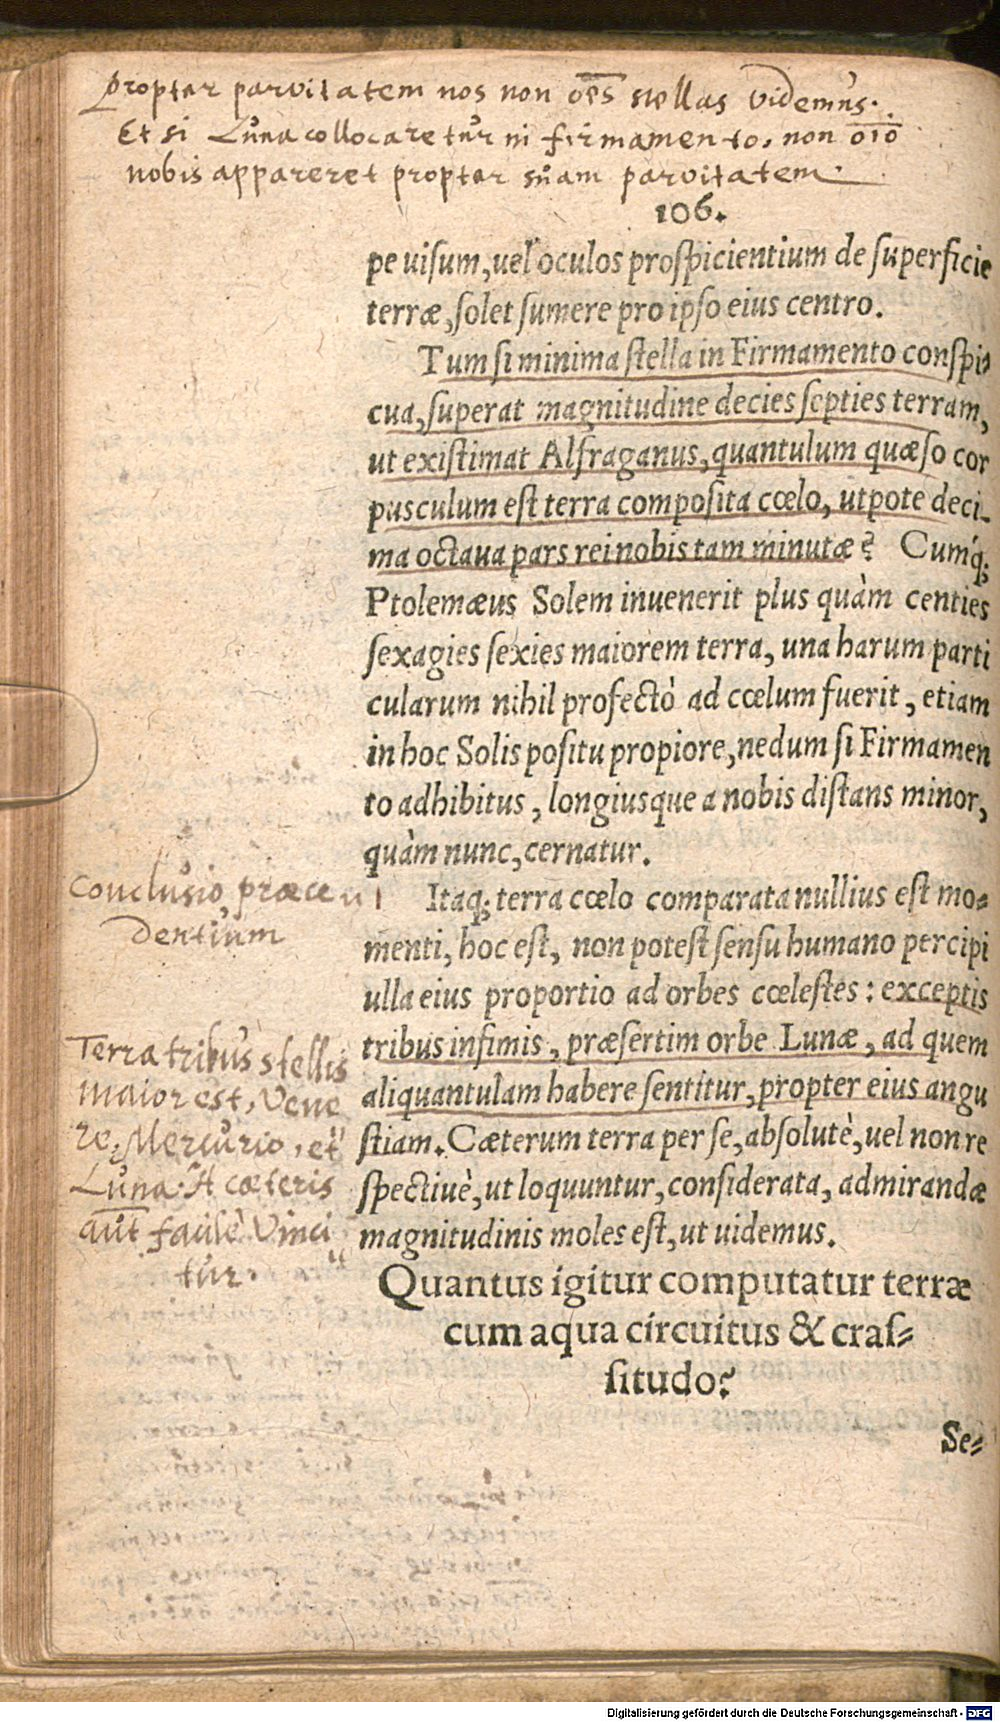 propter parvitatem nos non oēs stellas videmus.
Et si Luna collocaretur in firmamento, non oīo
nobis appareret propter suam parvitatem.
106.
pe uisum, uel oculos prospicientium de superficie
terræ, solet sumere pro ipso eius centro.
Tum si minima stella in Firmamento conspi-
cua, superat magnitudine decies septies terram,
ut existimat Alfraganus, quantulum quæso cor
pusculum est terra composita cœlo, utpote deci-
ma octaua pars rei nobis tam minutæ? Cumq́;
Ptolemæus Solem inuenerit plus quàm centies
sexagies sexies maiorem terra, una harum parti
cularum nihil profectò ad cœlum fuerit, etiam
in hoc Solis positu propiore, nedum si Firmamen
to adhibitus, longiusque a nobis distans minor,
quàm nunc, cernatur.
Conclusio præce
dentium
Itaq; terra cœlo comparata nullius est mo-
menti, hoc est, non potest sensu humano percipi
ulla eius proportio ad orbes cœlestes: exceptis
tribus infimis, præsertim orbe Lunæ, ad quem
aliquantulam habere sentitur, propter eius angu
stiam. Cæterum terra per se, absolutè, uel non re
spectiuè, ut loquuntur, considerata, admirandæ
magnitudinis moles est, ut uidemus.
Terra tribus stellis
maior est, Vene
re, Mercurio, et
Luna. A cæteris
aut facile Vinci
tur.
Quantus igitur computatur terræ
cum aqua circuitus & cras-
situdo?
Se-
Digitalisierung gefördert durch die Deutsche Forschungsgemeinschaft - DFG